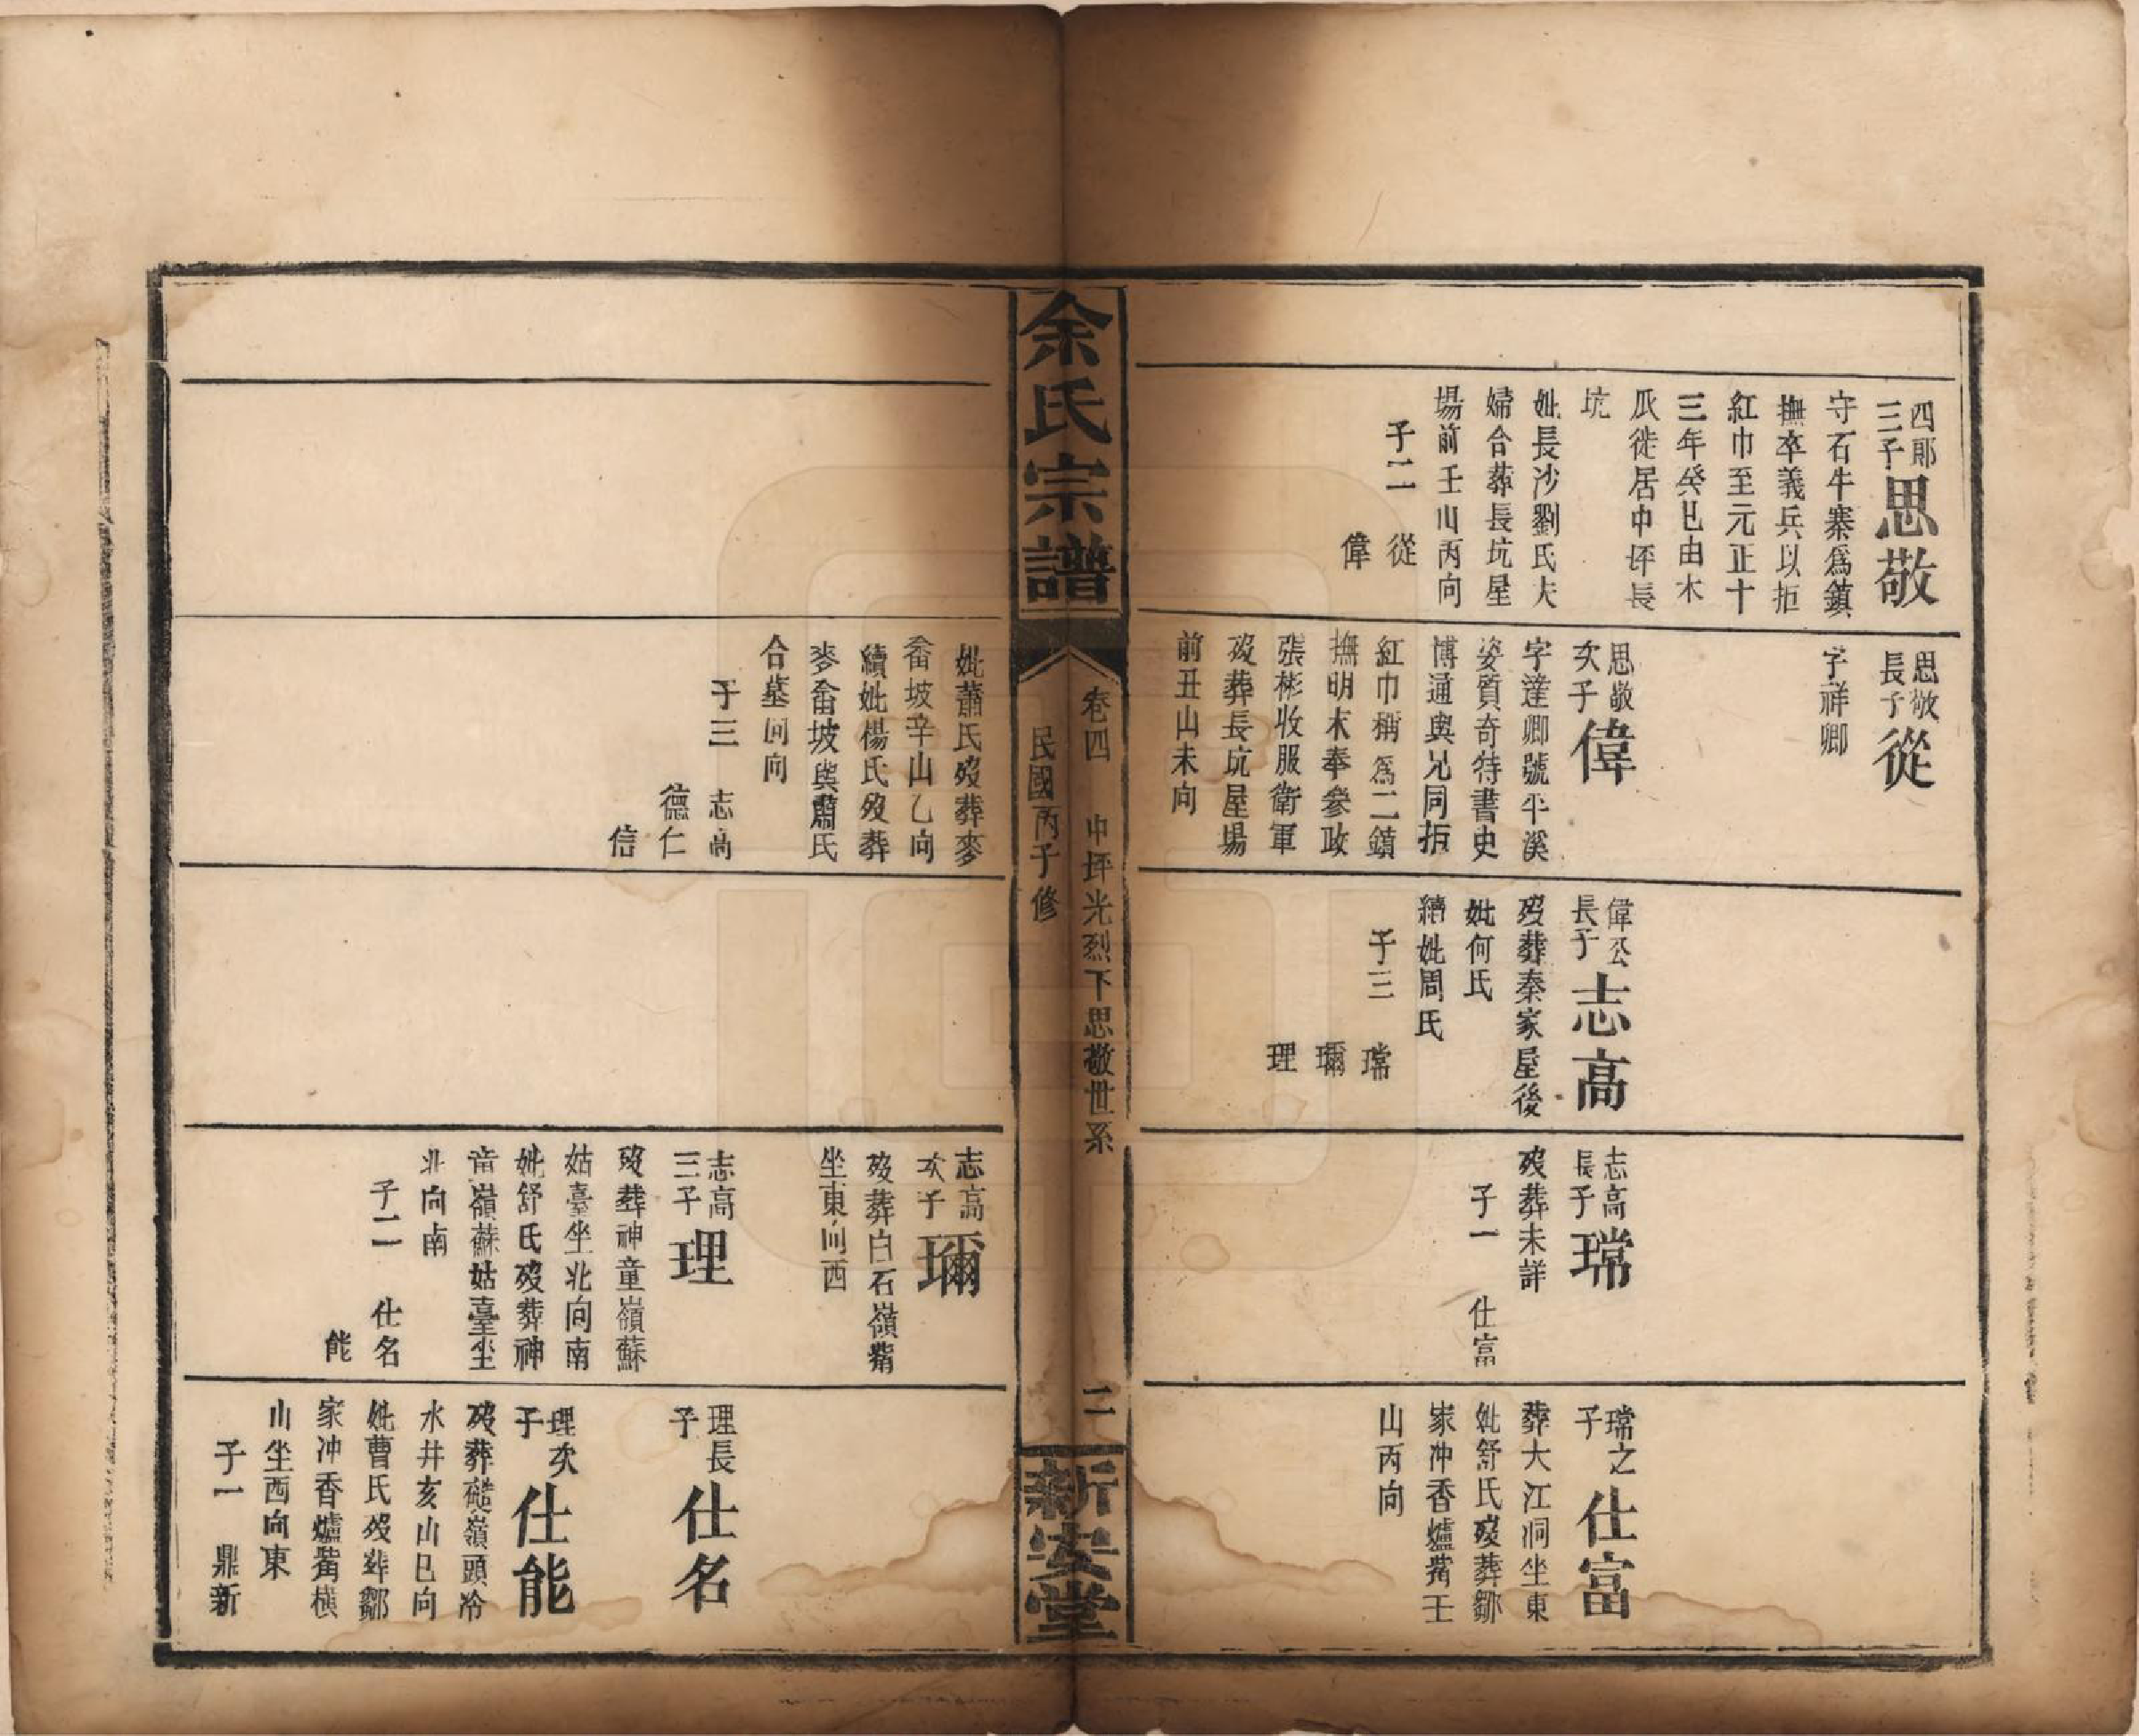 四郎
三子
思敬
守石牛寨爲鎮
撫卒義兵以拒
紅巾至元正十
三年癸巳由木
瓜徙居中坪長
坑
妣長沙劉氏夫
婦合葬長坑屋
場前壬山丙向
子二　從
偉
思敬
長子
從
字祥卿
思敬
次子
偉
字達卿號平溪
姿質奇特書史
博通與兄同拒
紅巾稱爲二鎮
撫明末奉參政
張彬收服衛軍
歿葬長坑屋場
前丑山未向
偉公
長子
志高
歿葬秦家屋後
妣何氏
續妣周氏
子三　瑺
瓓
理
志高
長子
瑺
歿葬未詳
子一　仕富
瑺之
子
仕富
葬大江洞坐東
妣舒氏歿葬鄒
家冲香爐觜壬
山丙向
余氏宗譜
卷四　中坪光烈下思敬世系　二
民國丙子修
新安堂
妣蕭氏歿葬麥
畬坡辛山乙向
續妣楊氏歿葬
麥畬坡與蕭氏
合墓同向
子三　志高
德仁
信
志高
次子
瓓
歿葬白石嶺觜
坐東向西
志高
三子
理
歿葬神童嶺蘇
姑臺坐北向南
妣舒氏歿葬神
童嶺蘇姑臺坐
北向南
子二　仕名
能
理長
子
仕名
理次
子
仕能
歿葬礚嶺頭冷
水井亥山巳向
妣曹氏歿葬鄒
家冲香爐觜橫
山坐西向東
子一　鼎新